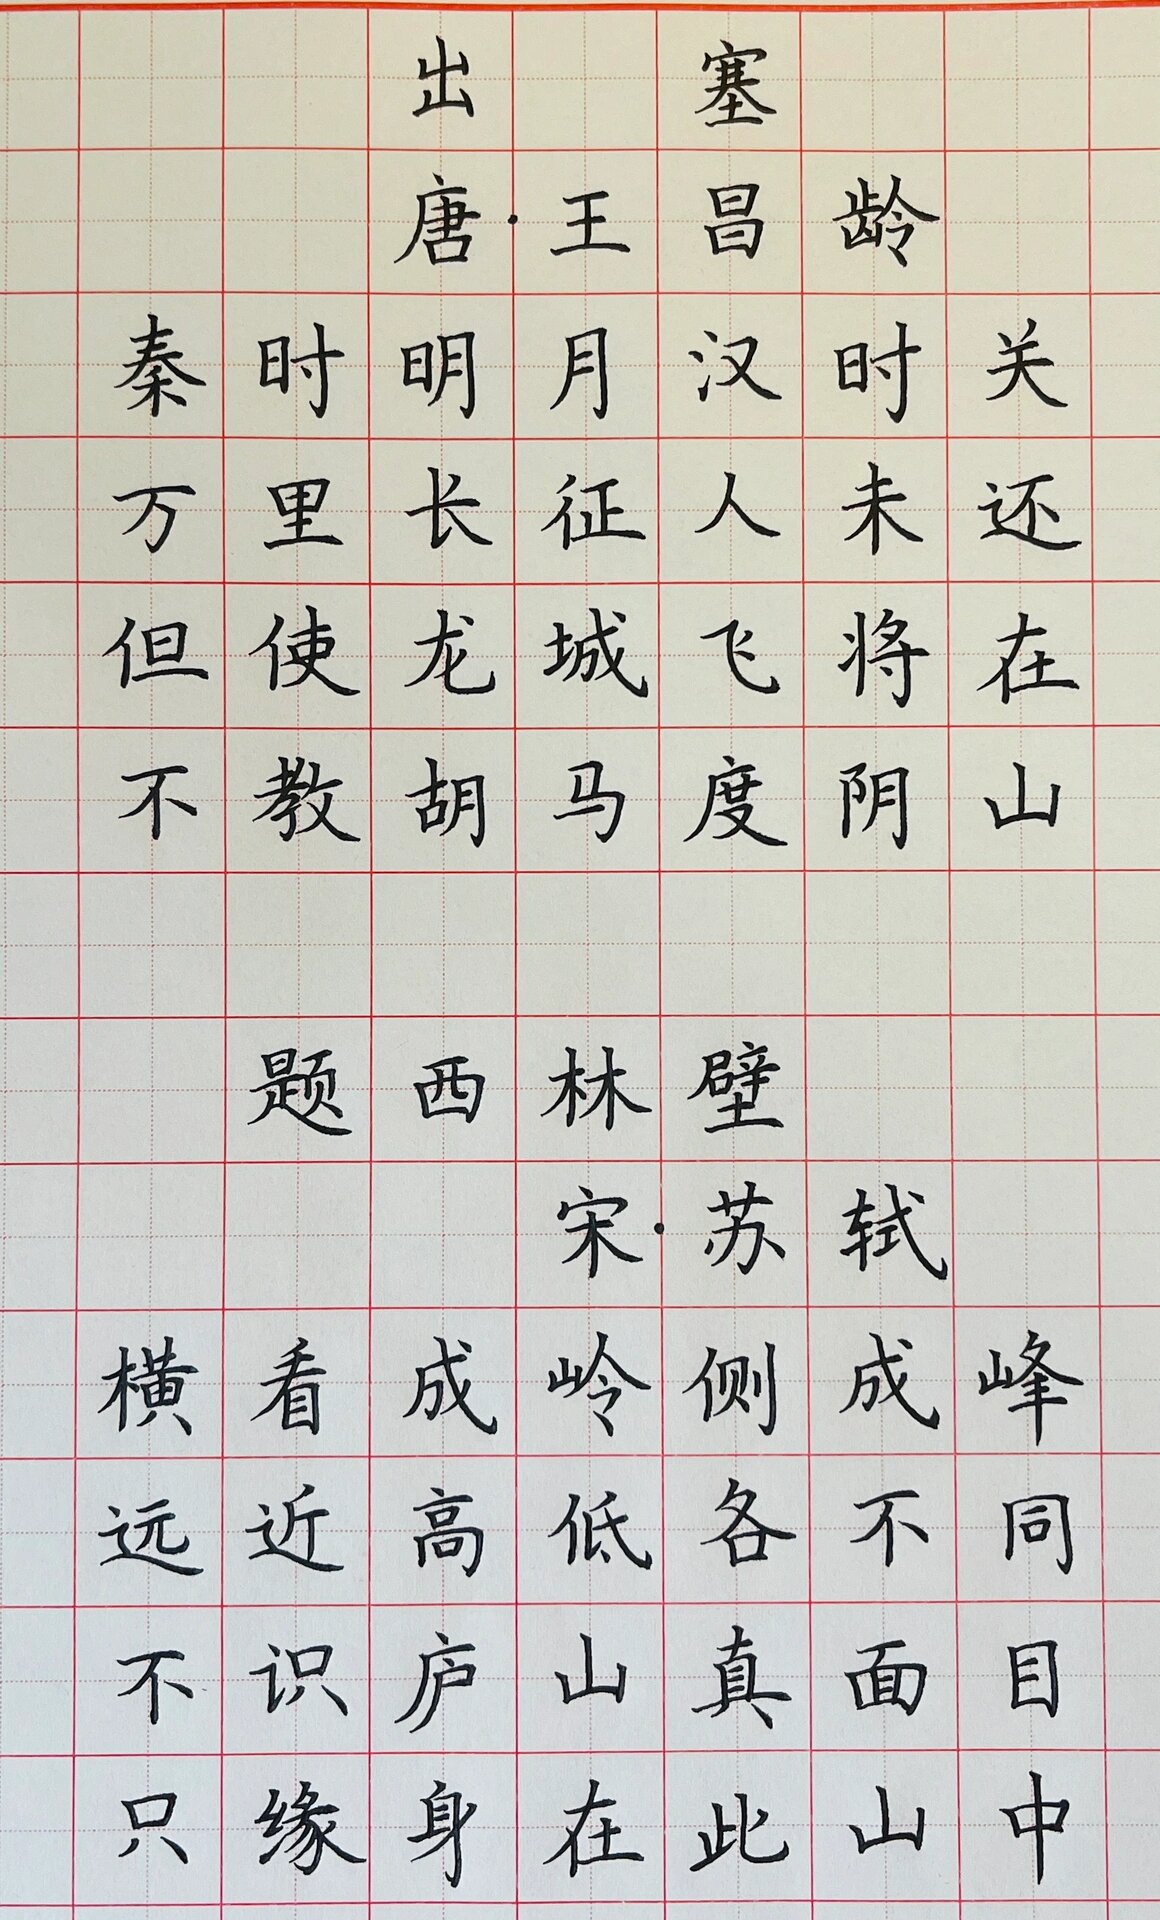 出塞
唐·王昌龄
秦时明月汉时关
万里长征人未还
但使龙城飞将在
不教胡马度阴山
题西林壁
宋·苏轼
横看成岭侧成峰
远近高低各不同
不识庐山真面目
只缘身在此山中